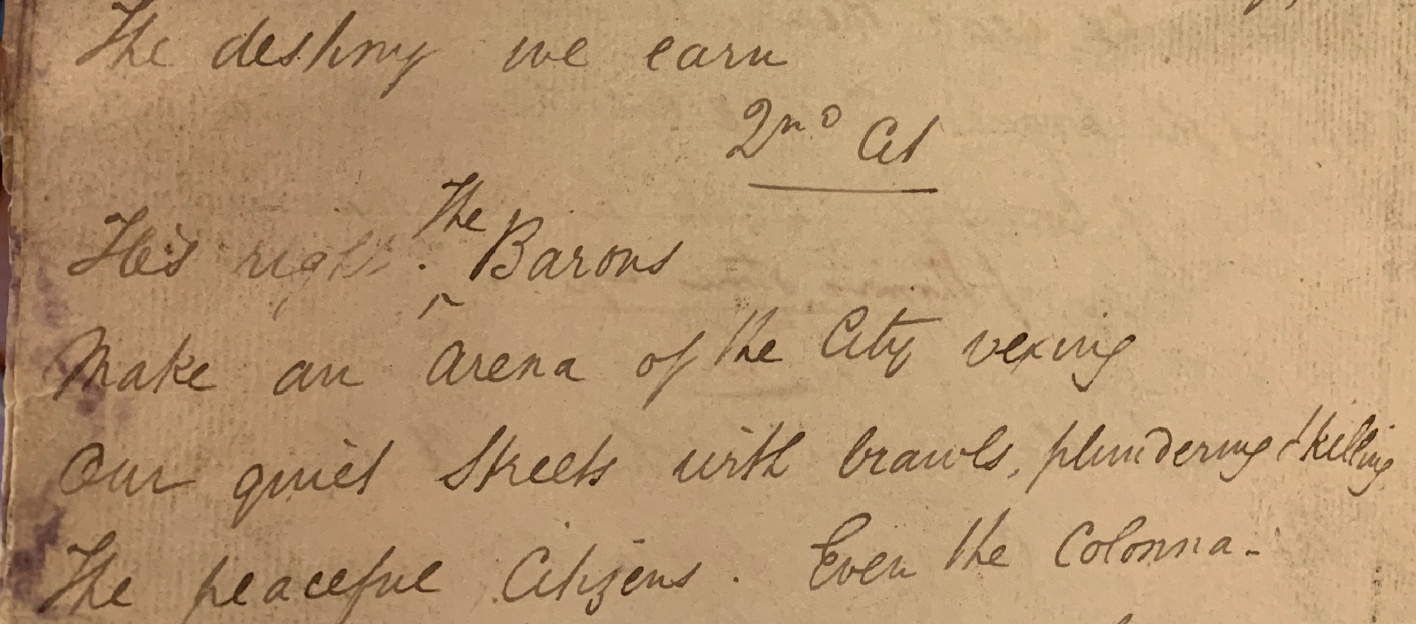 The destiny we earn
2nd Ct
He's right. The Barons
Make an Arena of the City vexing
Our quiet Streets with brawls, plundering & killing
The peaceful Citizens. Even the Colonna -